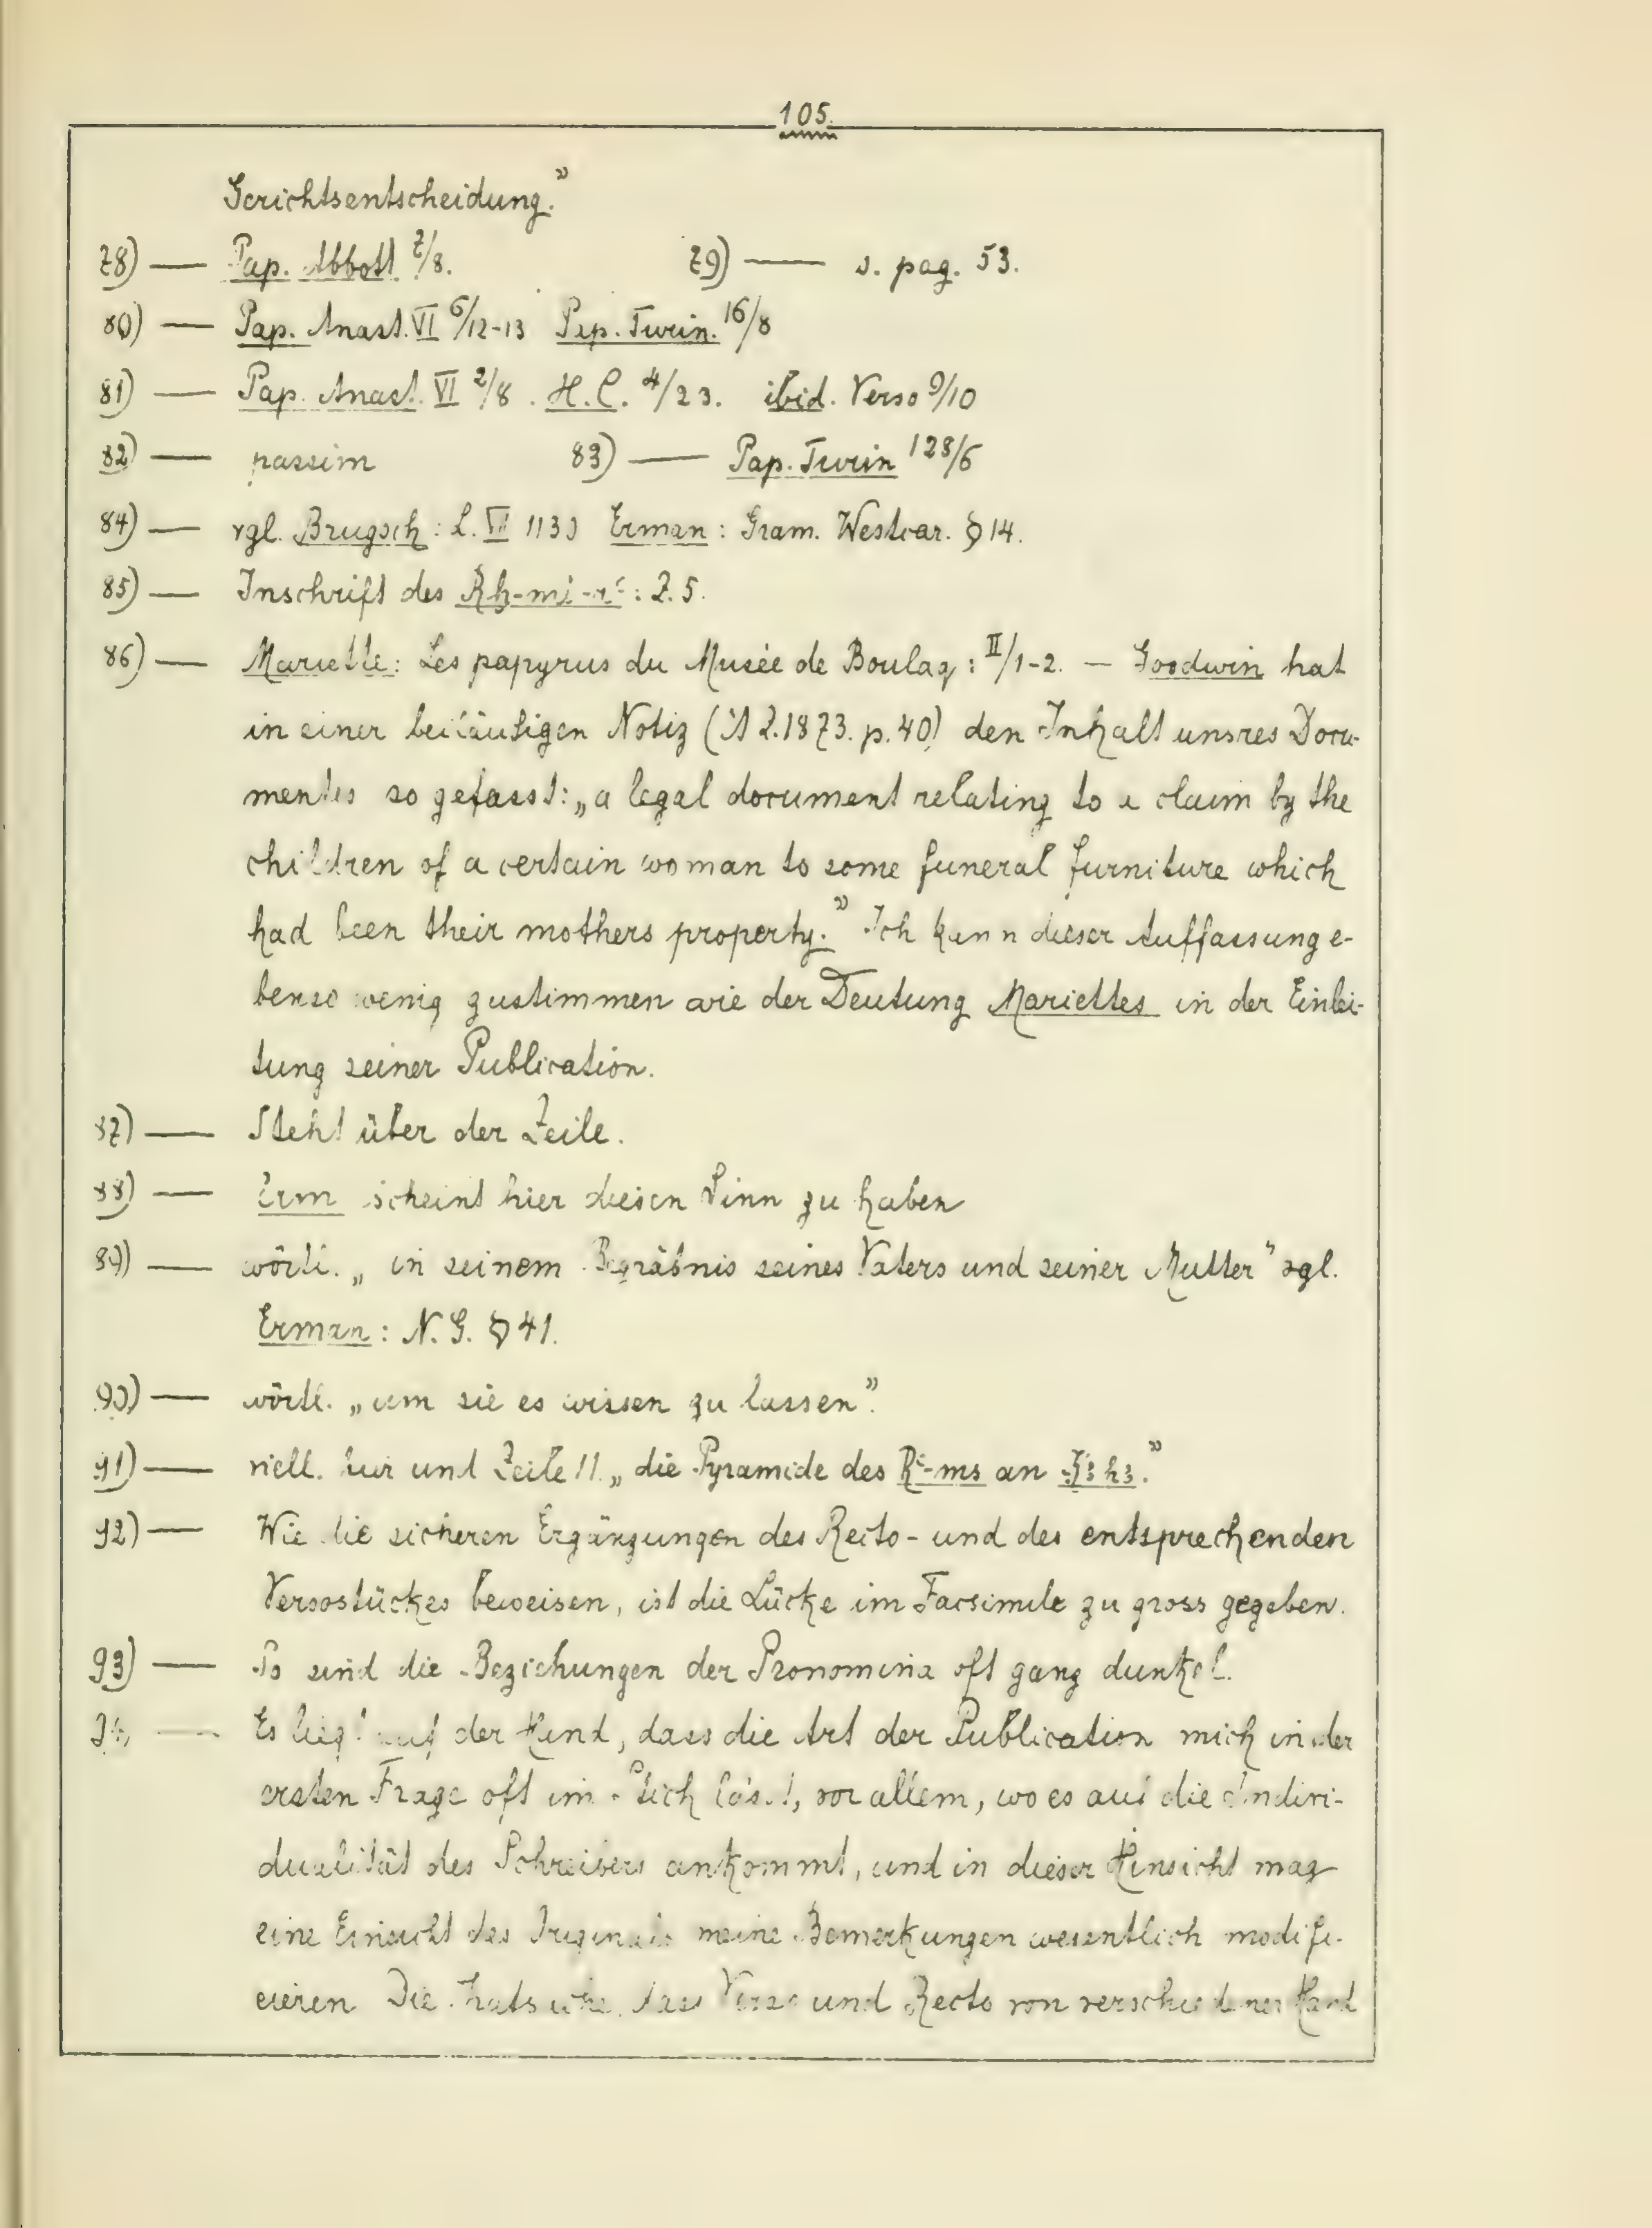 105.
Gerichtsentscheidung.”
78) — Pap. Abbott 7/8. 79) — s. pag. 53.
80) — Pap. Anast. VI 6/12-13 Pap. Turin. 16/8
81) — Pap. Anast. VI 2/8. H.C. 4/23. ibid. Verso 9/10
82) — passim 83) — Pap. Turin 128/6
84) — vgl. Brugsch: L. Erman: Gram. Westcar. § 14.
85) — Inschrift des Rḫ-mj-rʿ: Z. 5.
86) — Mariette: Les papyrus du Musée de Boulaq: II/1-2. — Goodwin hat
in einer beiläufigen Notiz (ÄZ. 1873. p. 40) den Inhalt unsres Docu-
mentes so gefasst: „a legal document relating to a claim by the
children of a certain woman to some funeral furniture which
had been their mothers property.” Ich kann dieser Auffassung e-
benso wenig zustimmen wie der Deutung Mariettes in der Einlei-
tung seiner Publication.
87) — Steht über der Zeile.
88) — scheint hier diesen Sinn zu haben
89) — wörtl. „in seinem Begräbnis seines Vaters und seiner Mutter” vgl.
Erman: N. G. § 41.
90) — wörtl. „um sie es wissen zu lassen”.
91) — viell. hier und Zeile 11. „die Pyramide des Rʿ-ms an
92) — Wie die sicheren Ergänzungen des Recto- und des entsprechenden
Versostückes beweisen, ist die Lücke im Facsimile zu gross gegeben.
93) — So sind die Beziehungen der Pronomina oft ganz dunkel.
94) — Es liegt auf der Hand, dass die Art der Publication mich in der
ersten Frage oft im Stich lässt, vor allem, wo es auf die Indivi-
dualität des Schreibers ankommt, und in dieser Hinsicht mag
eine Einsicht des Originals meine Bemerkungen wesentlich modifi-
cieren Die Thatsache, dass Verso und Recto von verschiedener Hand